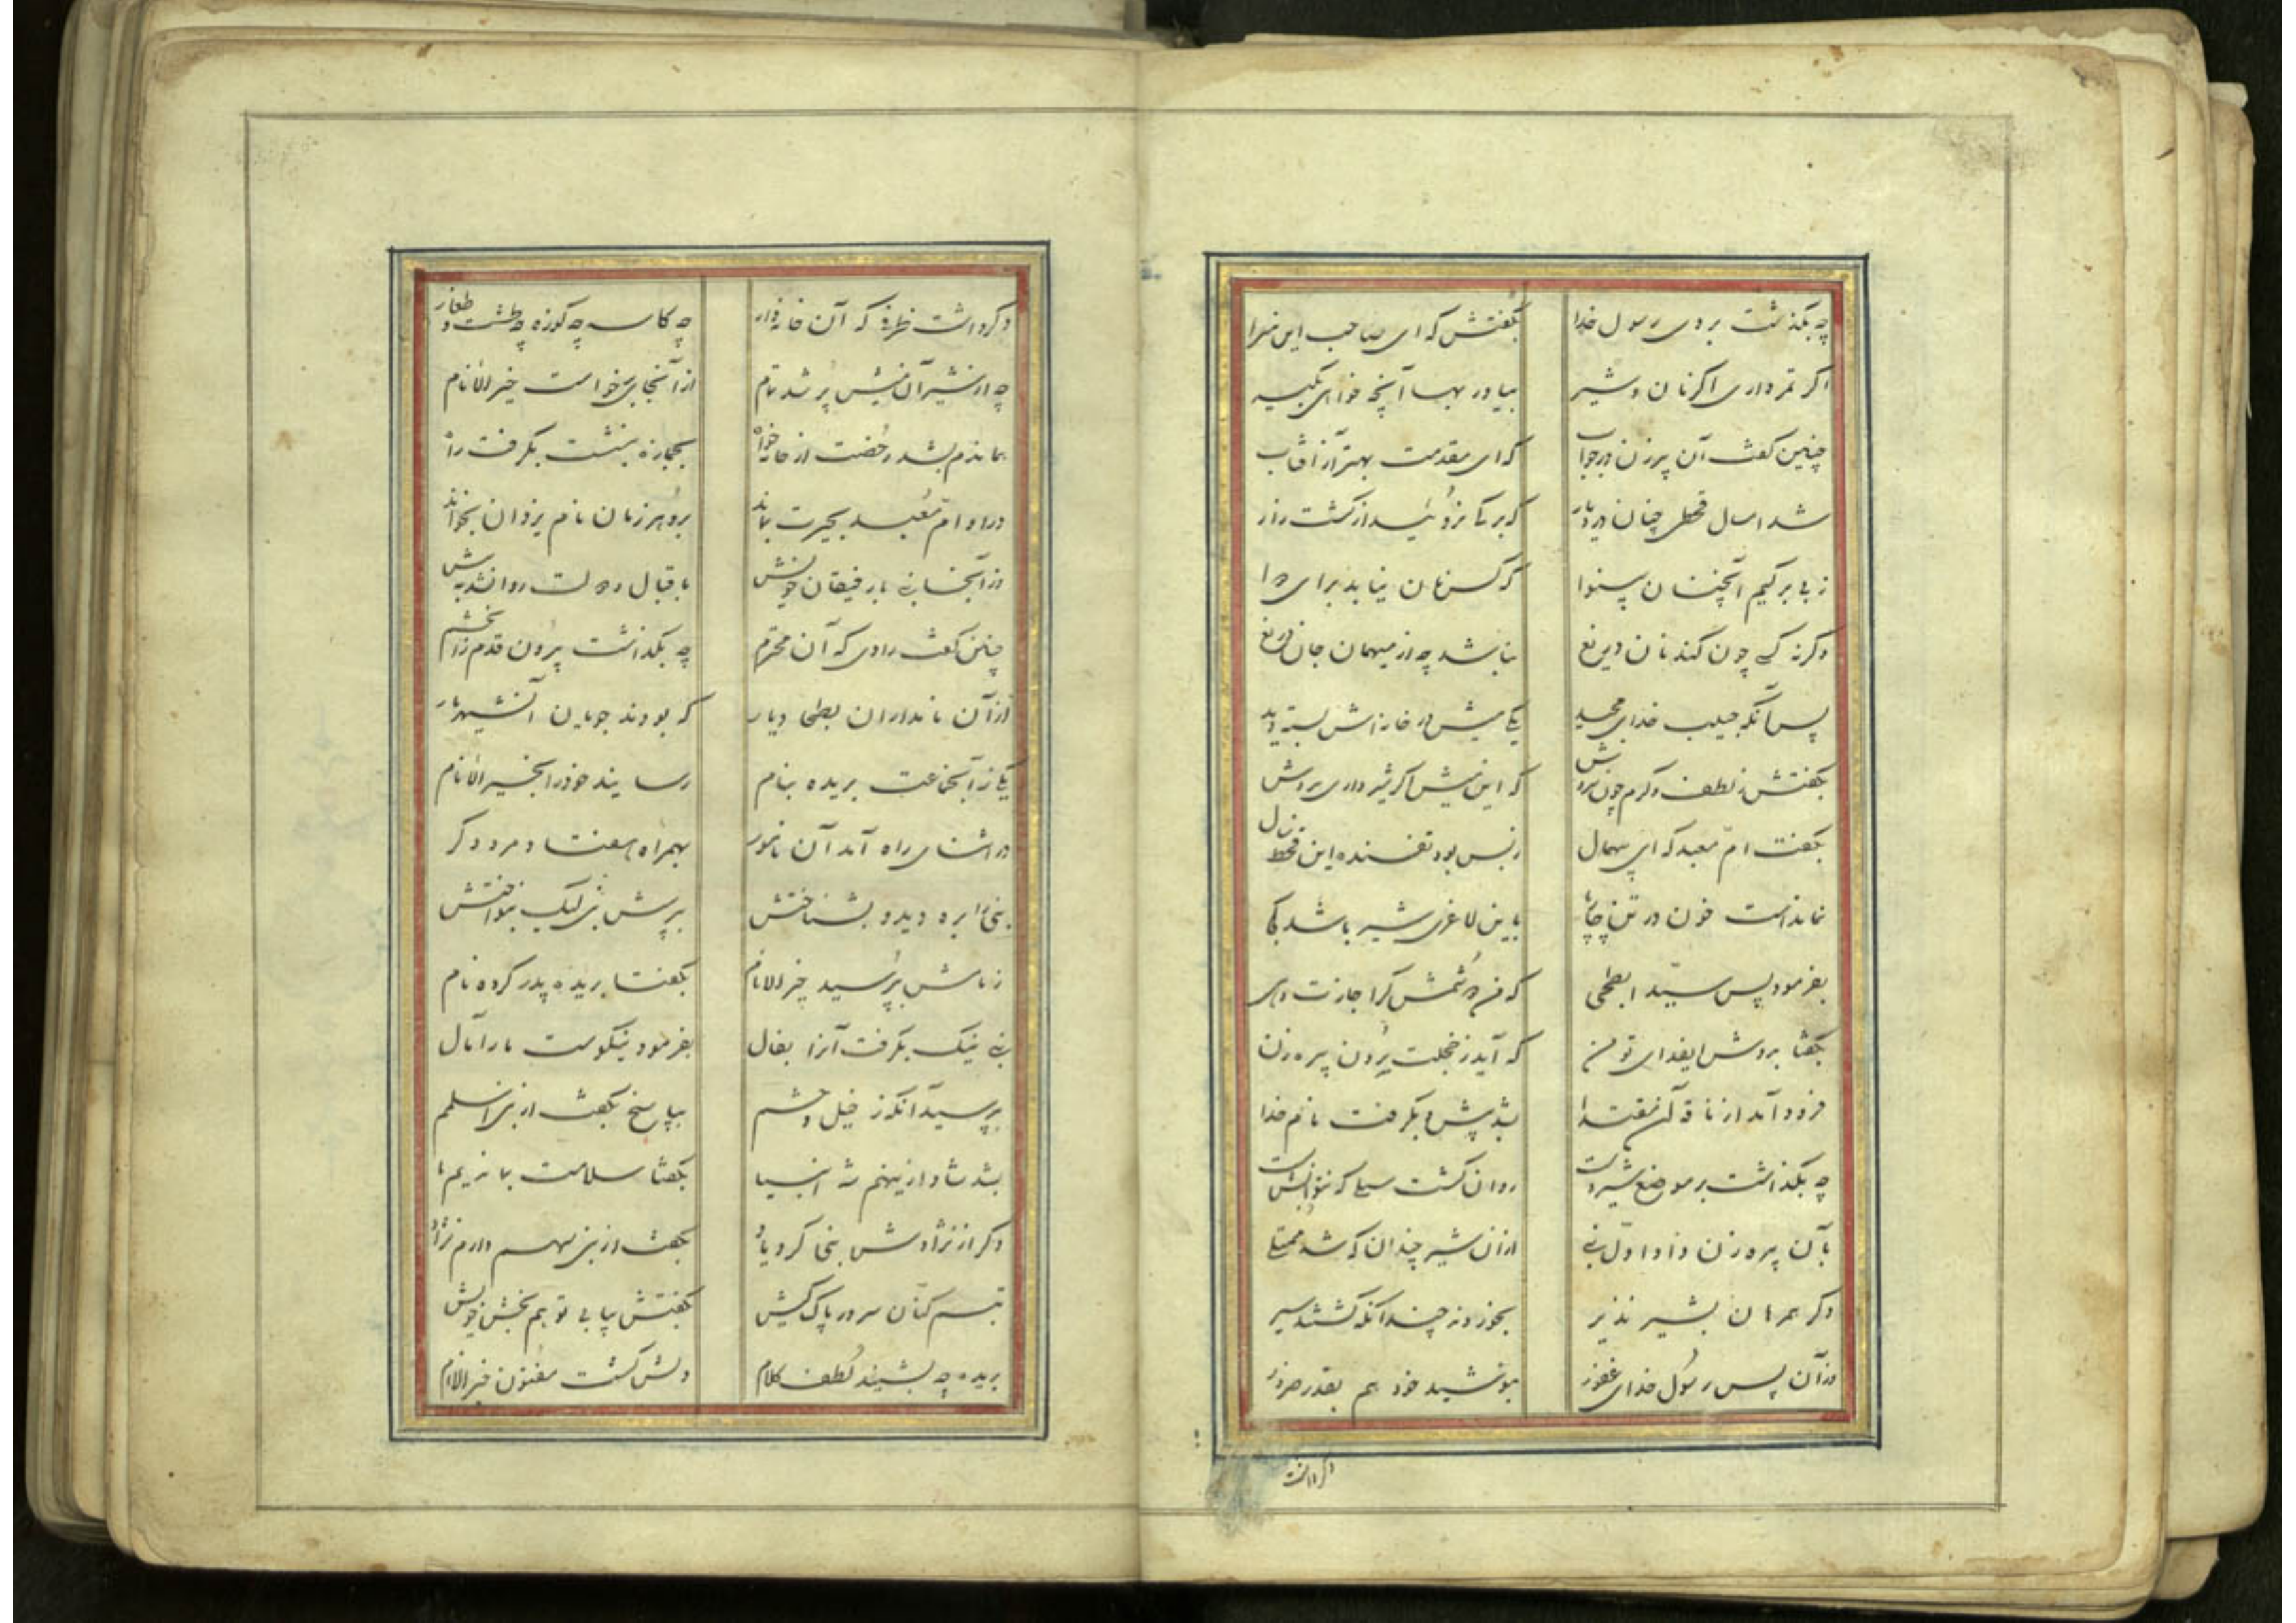 چه بگذشت بر وی رسول خدا بگفتش که ای صاحب این سرا
اگر تمر داری اگر نان و شیر بیاور بها آنچه خواهی بگیر
چنین گفت آن پیرزن در جواب که ای مقدمت بهتر از آفتاب
شد امسال قحطی چنان در دیار که برگی نروئید از کشت زار
ز بی برگیم آنچنان بینوا که کس نان نیابد برای دوا
وگرنه کسی چون کند نان دریغ نباشد چه از میهمان جان دریغ
پس آنگه حبیب خدای مجید یکی میش در خانه اش بسته دید
بگفتش ز لطف و کرم چون سروش که این میش اگر شیر دارد بدوش
بگفت ام معبد که ای بیهمال ز بس بود تفسنده این قحط سال
نماند است خون در تن چارپا باین لاغری شیر باشد کجا
بفرمود پس سید ابطحی که من دوشمش گر اجازت دهی
بگفتا بدوش ای فدای تو من که آید ز خجلت برون پیره زن
فرود آمد از ناقه آن مقتدا بشد پیش و بگرفت نام خدا
چه بگذاشت بر موضع شیر دست روان گشت سیلی که نتوانش بست
بآن پیره زن داد اول نبی از آن شیر چندان که شد ممتلی
دگر همرهان بشیر نذیر بخوردند چندانکه گشتند سیر
از آن پس رسول خدای غفور بنوشید خود هم بقدر ضرور
دگر داشت
دگر داشت ظرفی که آن خانه دار چه کاسه چه کوزه چه طشت و طغار
چه از شیر آن میش پر شد تمام از آنجای برخواست خیر الانام
بجمازه بنشست بگرفت راه
در او ام معبد بحیرت بماند برو هر زمان نام یزدان بخواند
وز آنجا نبی با رفیقان خویش باقبال و دولت روانشد به پیش
چنین گفت راوی که آن محترم چه بگذاشت بیرون قدم زان
از آن نامداران بطحی دیار که بودند جویان آنشهریار
یکی زآنجماعت بریده بنام رسانید خود را بخیر الانام
در اثنای راه آمد آن نامور بهمراه هفتاد مرد دگر
نبی را بره دید و بشناختش بپرسش نبی لیک بنواختش
ز نامش بپرسید خیر الانام بگفتا بریده پدر کرده نام
نبی نیک بگرفت آنرا بفال بفرمود نیکوست ما را مآل
بپرسید آنگه ز خیل و حشم بپاسخ بگفت از بنی اسلمم
بشد شاد از اینهم شه انبیا بگفتا سلامت بماندیم ما
دگر از نژادش نبی کرد یاد بگفت از بنی سهم دارم نژاد
تبسم کنان سرور پاک کیش بگفتش بیابی تو هم بخش خویش
بریده چه بشنید لطف کلام دلش گشت مفتون خیر الانام